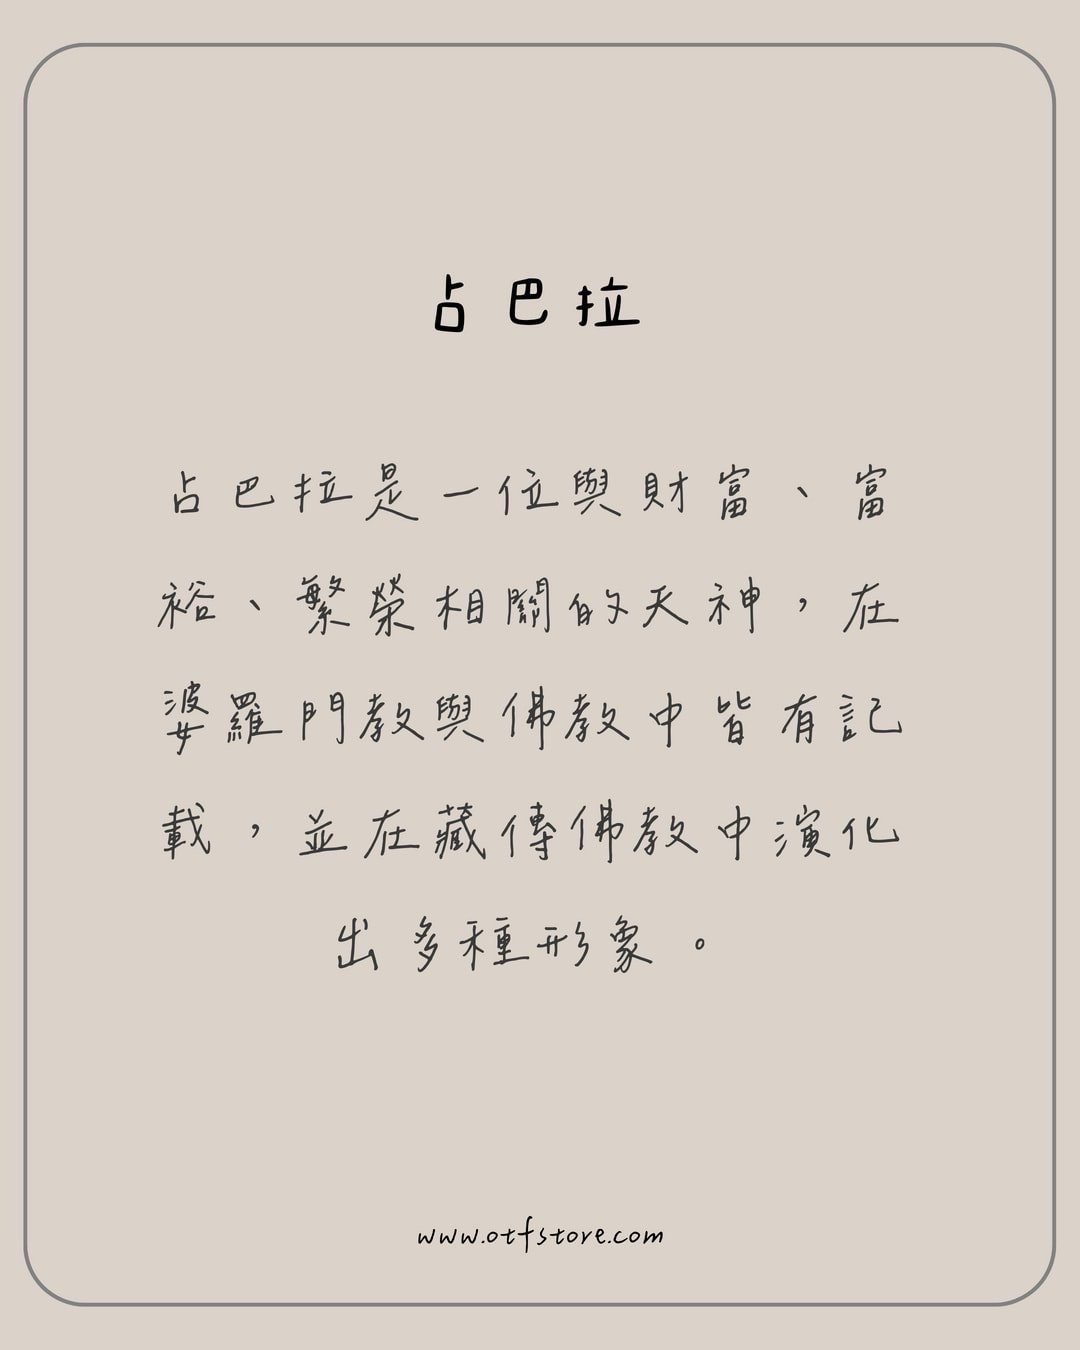 占巴拉
占巴拉是一位與財富、富
裕、繁榮相關的天神，在
婆羅門教與佛教中皆有記
載，並在藏傳佛教中演化
出多種形象。
www.otfstore.com